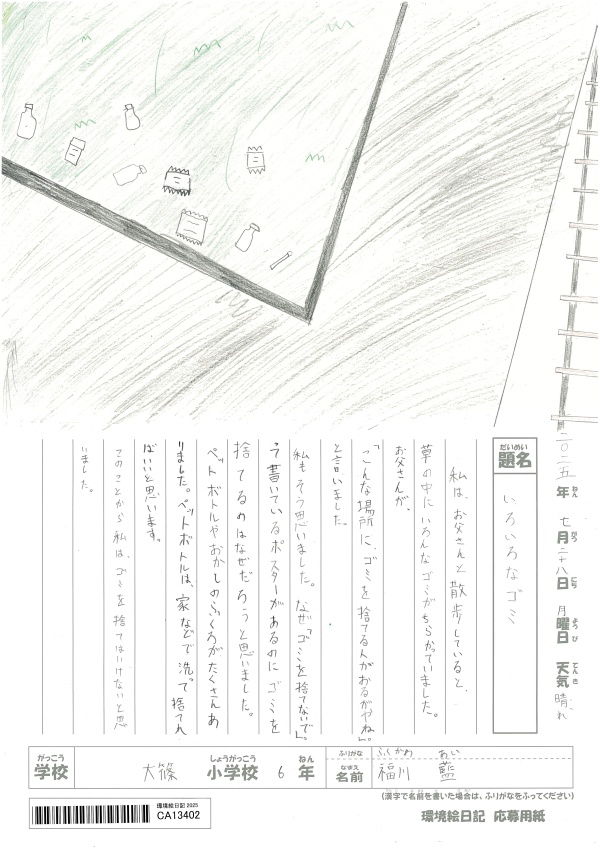 二〇二五年 七月二十八日 月曜日 天気 晴れ
ねん がつ にち ようび てんき
だいめい
題名
いろいろなゴミ
私は、お父さんと散歩していると、
草の中にいろんなゴミがちらかっていました。
お父さんが、
「こんな場所に、ゴミを捨てる人がおるがやね。」
と言いました。
私もそう思いました。なぜ「ゴミを捨てないで」
う書いているポスターがあるのにゴミを
捨てるのはなぜだろうと思いました。
ペットボトルやおかしのふくろがたくさんあ
りました。ペットボトルは、家などで洗って捨てれ
ばいいと思います。
このことから私は、ゴミを捨てはいけないと思
いました。
がっこう しょうがっこう ねん
学校 大篠 小学校 6年
ふりがな ふくかわ あい
なまえ
名前 福川 藍
(漢字で名前を書いた場合は、ふりがなをふってください)
環境絵日記 2025
CA13402
環境絵日記 応募用紙